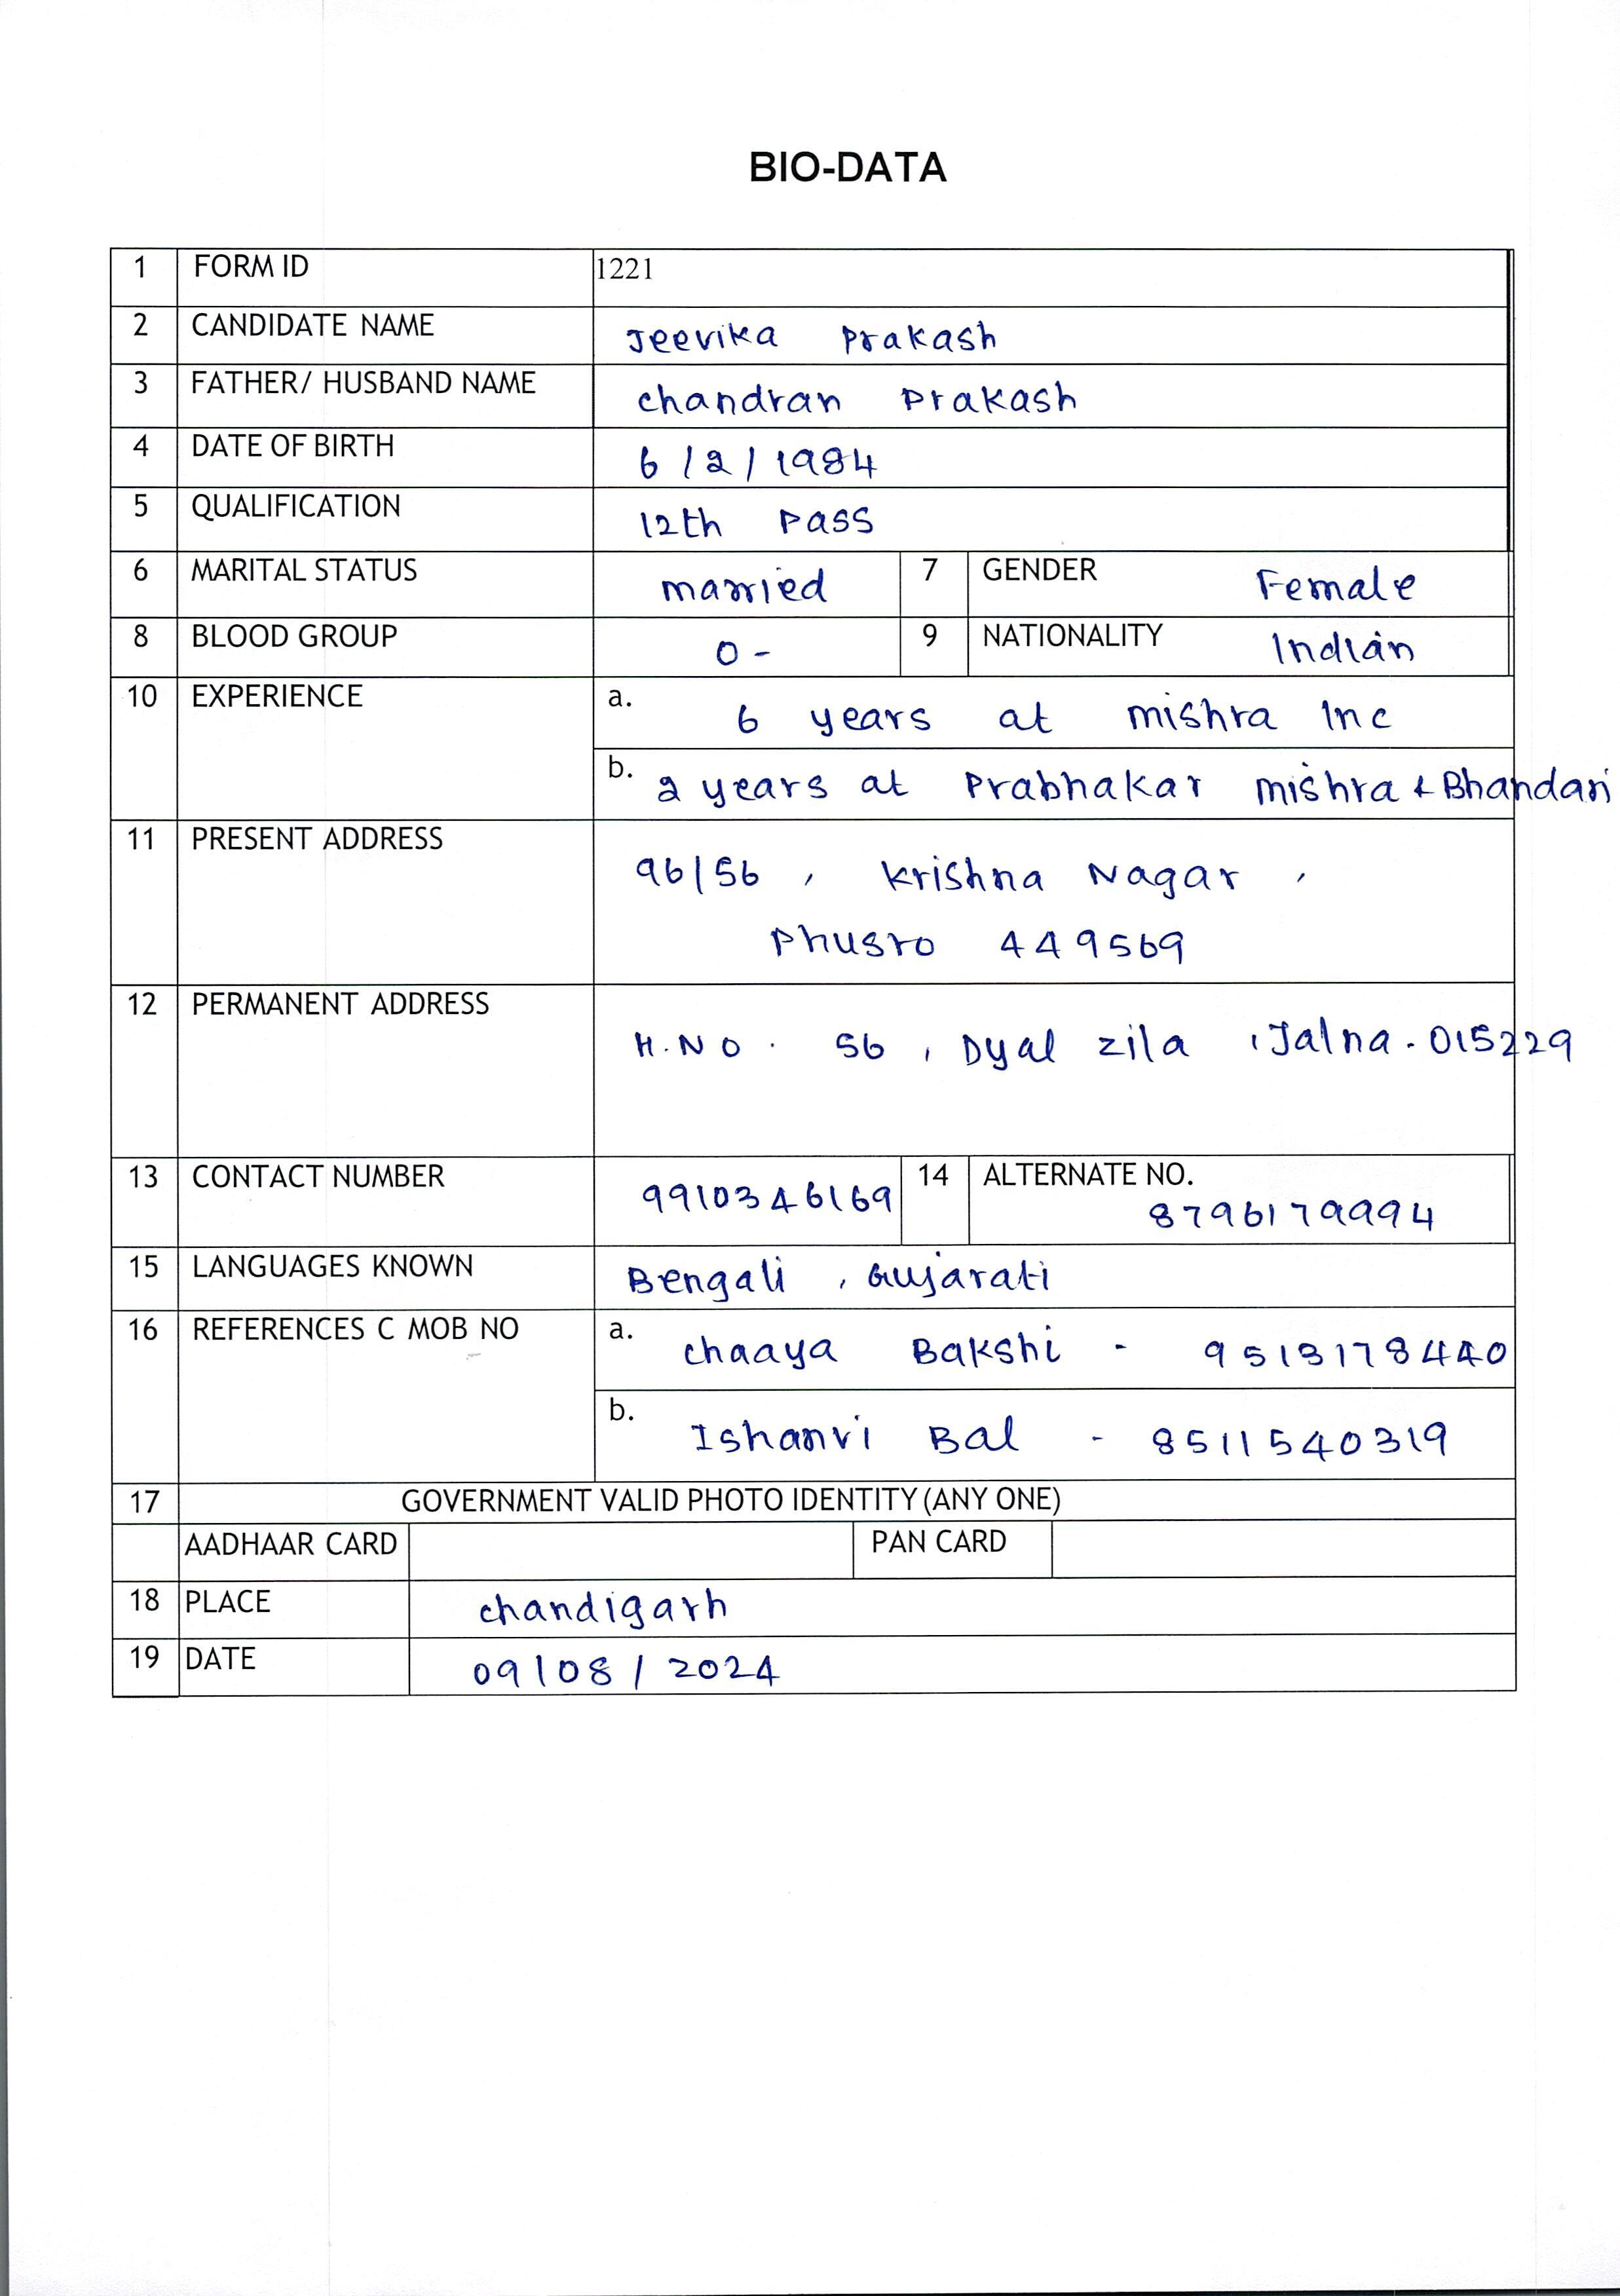 BIO-DATA
1 FORM ID 1221
2 CANDIDATE NAME Jeevika Prakash
3 FATHER/ HUSBAND NAME chandran Prakash
4 DATE OF BIRTH 6/2/1984
5 QUALIFICATION 12th Pass
6 MARITAL STATUS married 7 GENDER Female
8 BLOOD GROUP O- 9 NATIONALITY Indian
10 EXPERIENCE a. 6 years at mishra Inc
b. 2 years at Prabhakar mishra & Bhandari
11 PRESENT ADDRESS 96/56, Krishna Nagar,
Phusro 449569
12 PERMANENT ADDRESS H.NO. 56, Dyal zila, Jalna-015229
13 CONTACT NUMBER 9910346169 14 ALTERNATE NO.
8796179994
15 LANGUAGES KNOWN Bengali, Gujarati
16 REFERENCES C MOB NO a. chaaya Bakshi - 9513178440
b. Ishanvi Bal - 8511540319
17 GOVERNMENT VALID PHOTO IDENTITY (ANY ONE)
AADHAAR CARD PAN CARD
18 PLACE chandigarh
19 DATE 09/08/2024